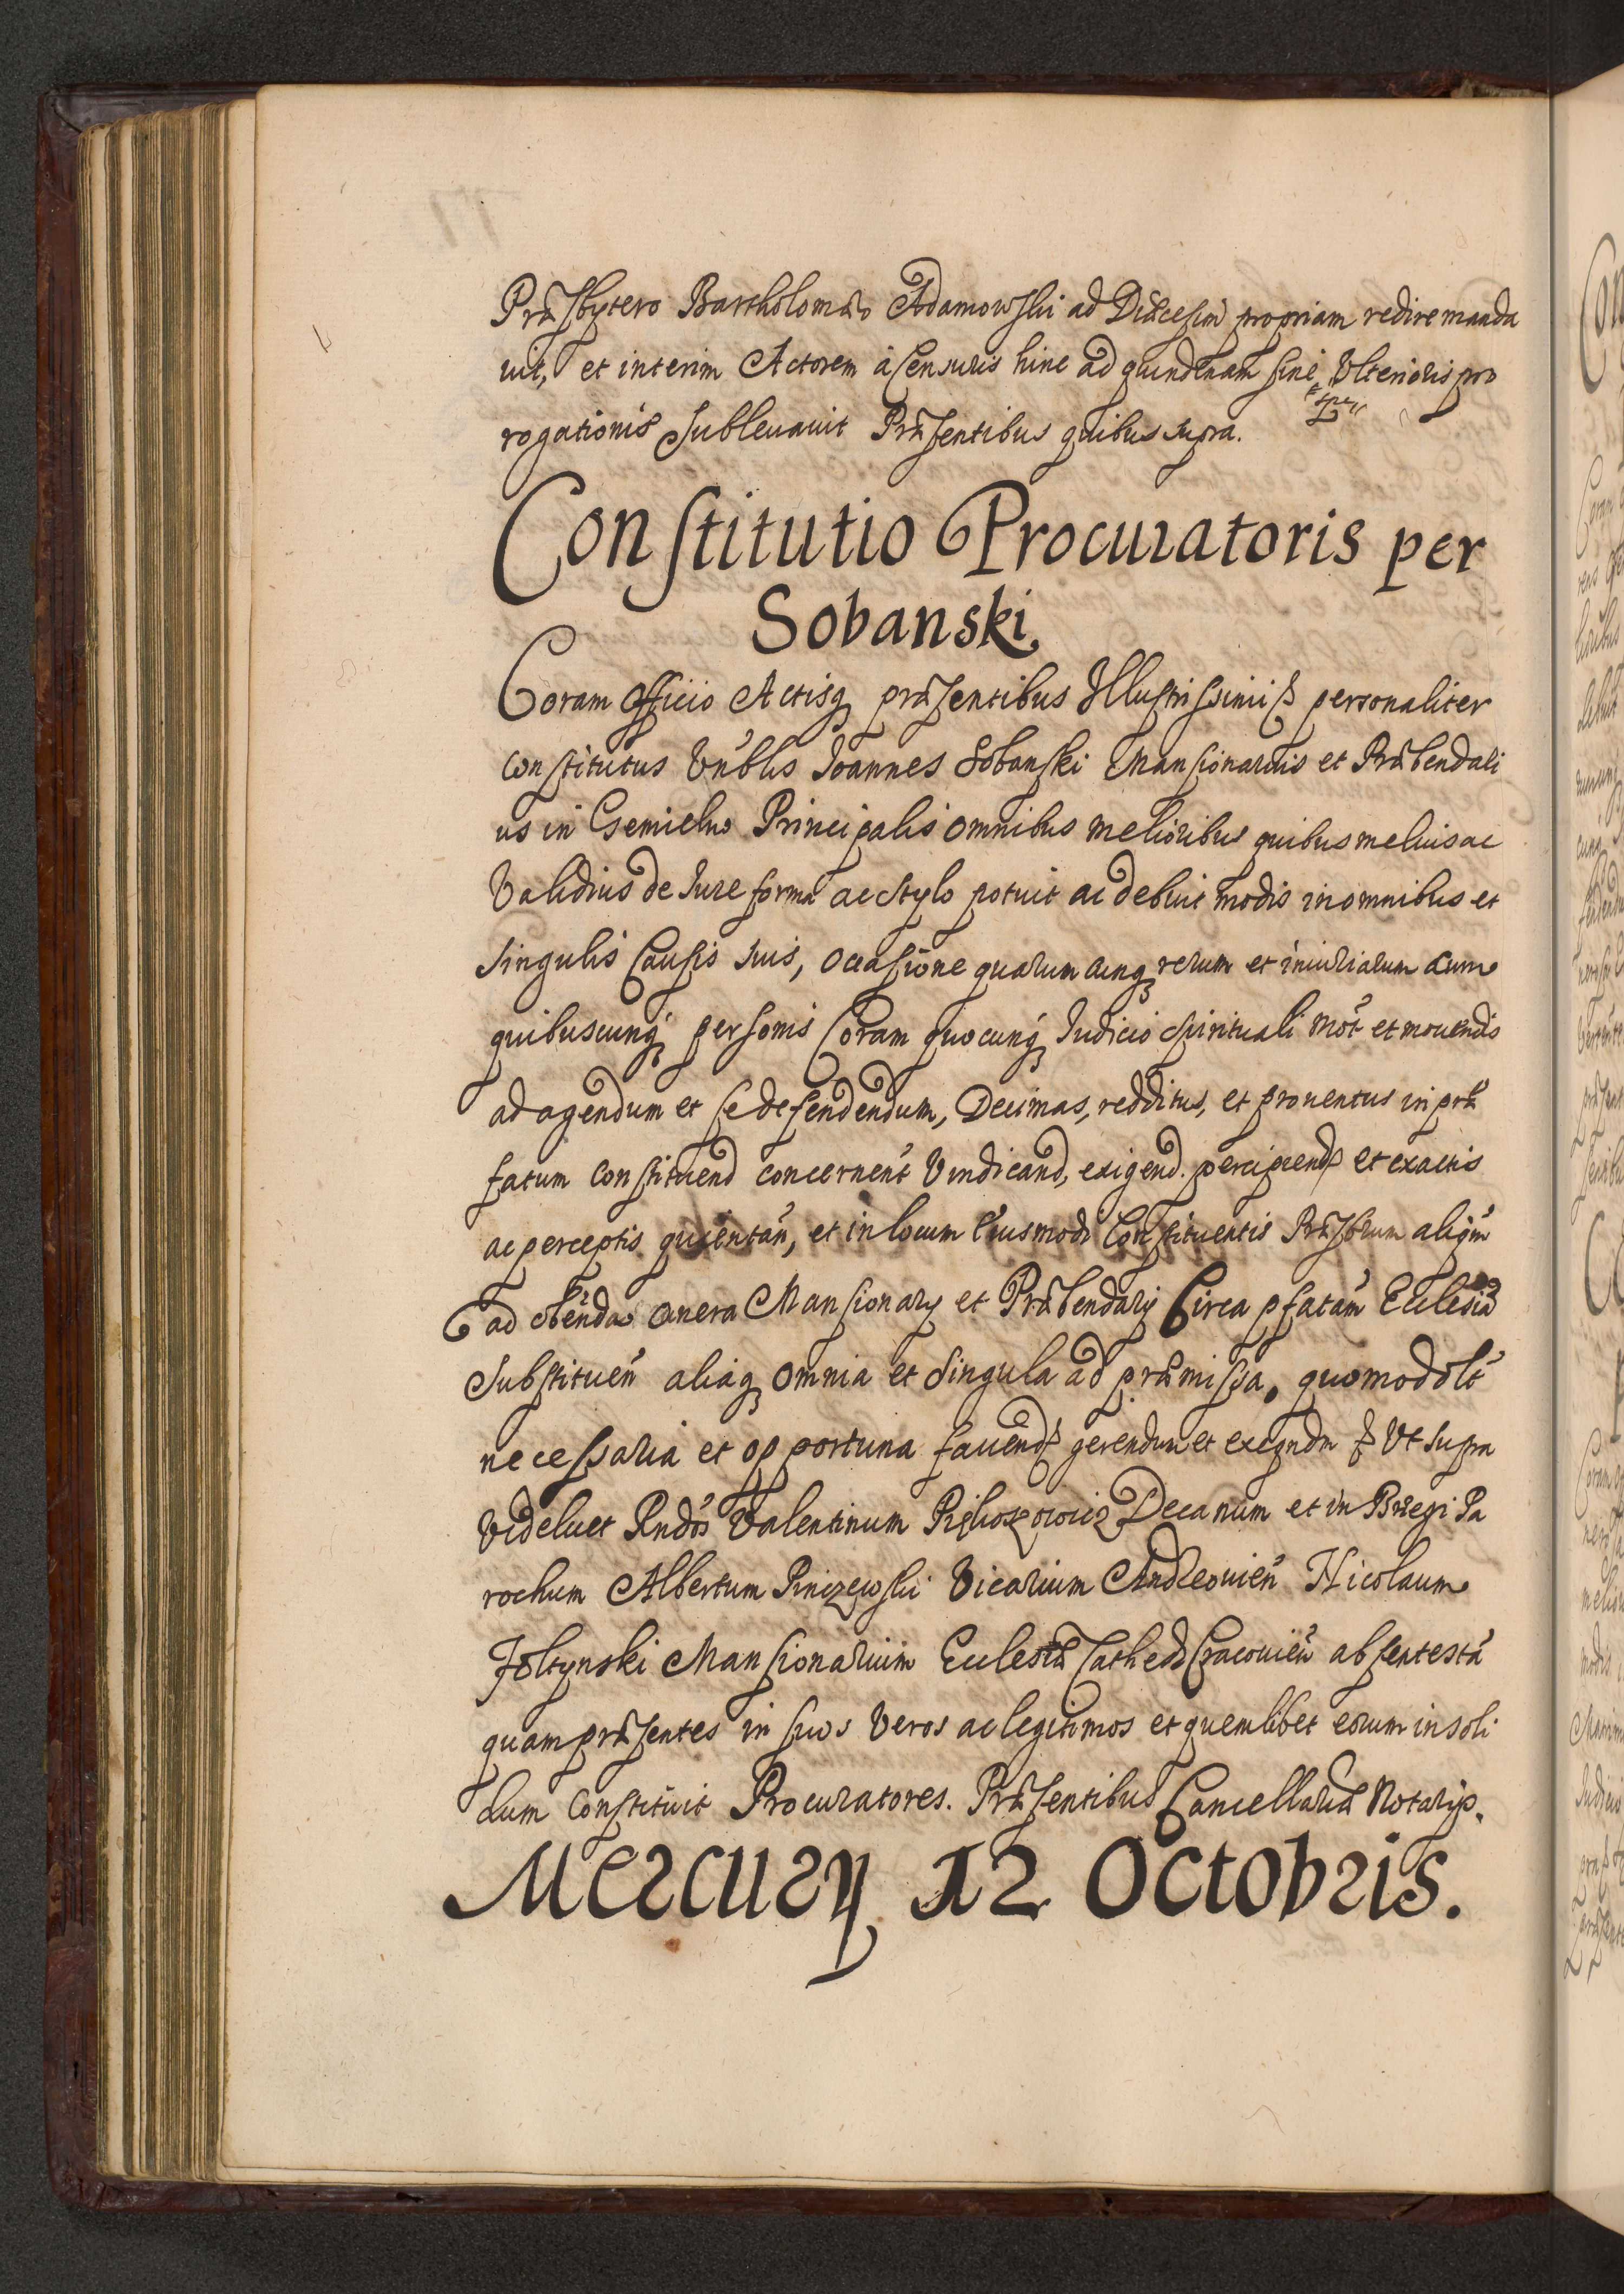 Præsbytero Bartholomæo Adamowski ad Diæcesim propriam redire manda
uit, et interim Actorem à Censuris hinc ad quindenam sine spe Vlterioris pro
rogationis Subleuauit Præsentibus quibus supra.
Constitutio Procuratoris per
Sobanski
Coram Officio Actisq præsentibus Illustrissimis personaliter
constitutus Vnblis Joannes Sobanski Mansionarius et Præbendari
us in Principalis omnibus melioribus quibus melius ac
Validius de Iure forma ac stylo potuit ac debuit modis in omnibus et
singulis Causis suis, occasione quarumcunq rerum et iniuriarum cum
quibuscunq personis Coram quocunq Iudicio Spirituali mot et mouendis
ad agendum et se defendendum, Decimas, redditus, et prouentus in præ
fatum constituend concernent Vindicand, exigend. percipiend et exactis
ac perceptis quientan, et in locum eiusmodi Constituentis Præsbrum aliqm
ad obeunda onera Mansionarij et Præbendarij Circa pfatam Ecclesiã
Substituen aliaq omnia et singula ad præmissa, quomodolt
necessaria et opportuna faciend gerendum et exeqndm Vt supra
Videlicet Rndos Valentinum Decanum et in Brzegi Pa
rochum Albertum Vicarium Andreouien Nicolaum
Zoltynski Mansionarium Ecclesiæ Cathed Cracouien absentes tã
quam præsentes in suos Veros ac legitimos et quemlibet eorum in soli
dum Constituit Procuratores. Præsentibus Cancellariæ Notarijs.
Mercurij 12 Octobris.